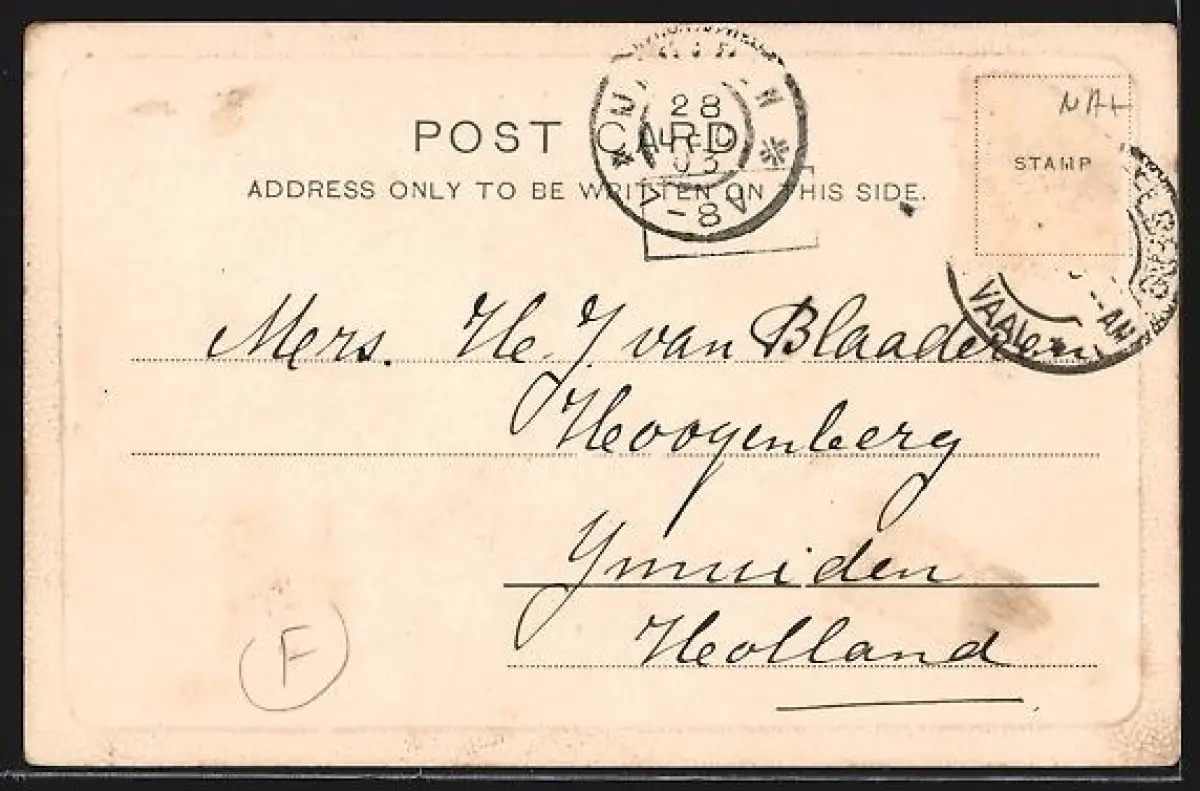 NAL
STAMP
28
POST CARD
03
ADDRESS ONLY TO BE WRITTEN ON THIS SIDE.
8-
VAAL
AM
Mers. H. J van Blaaderen
Hoogenberg
Ymuiden
Holland
F